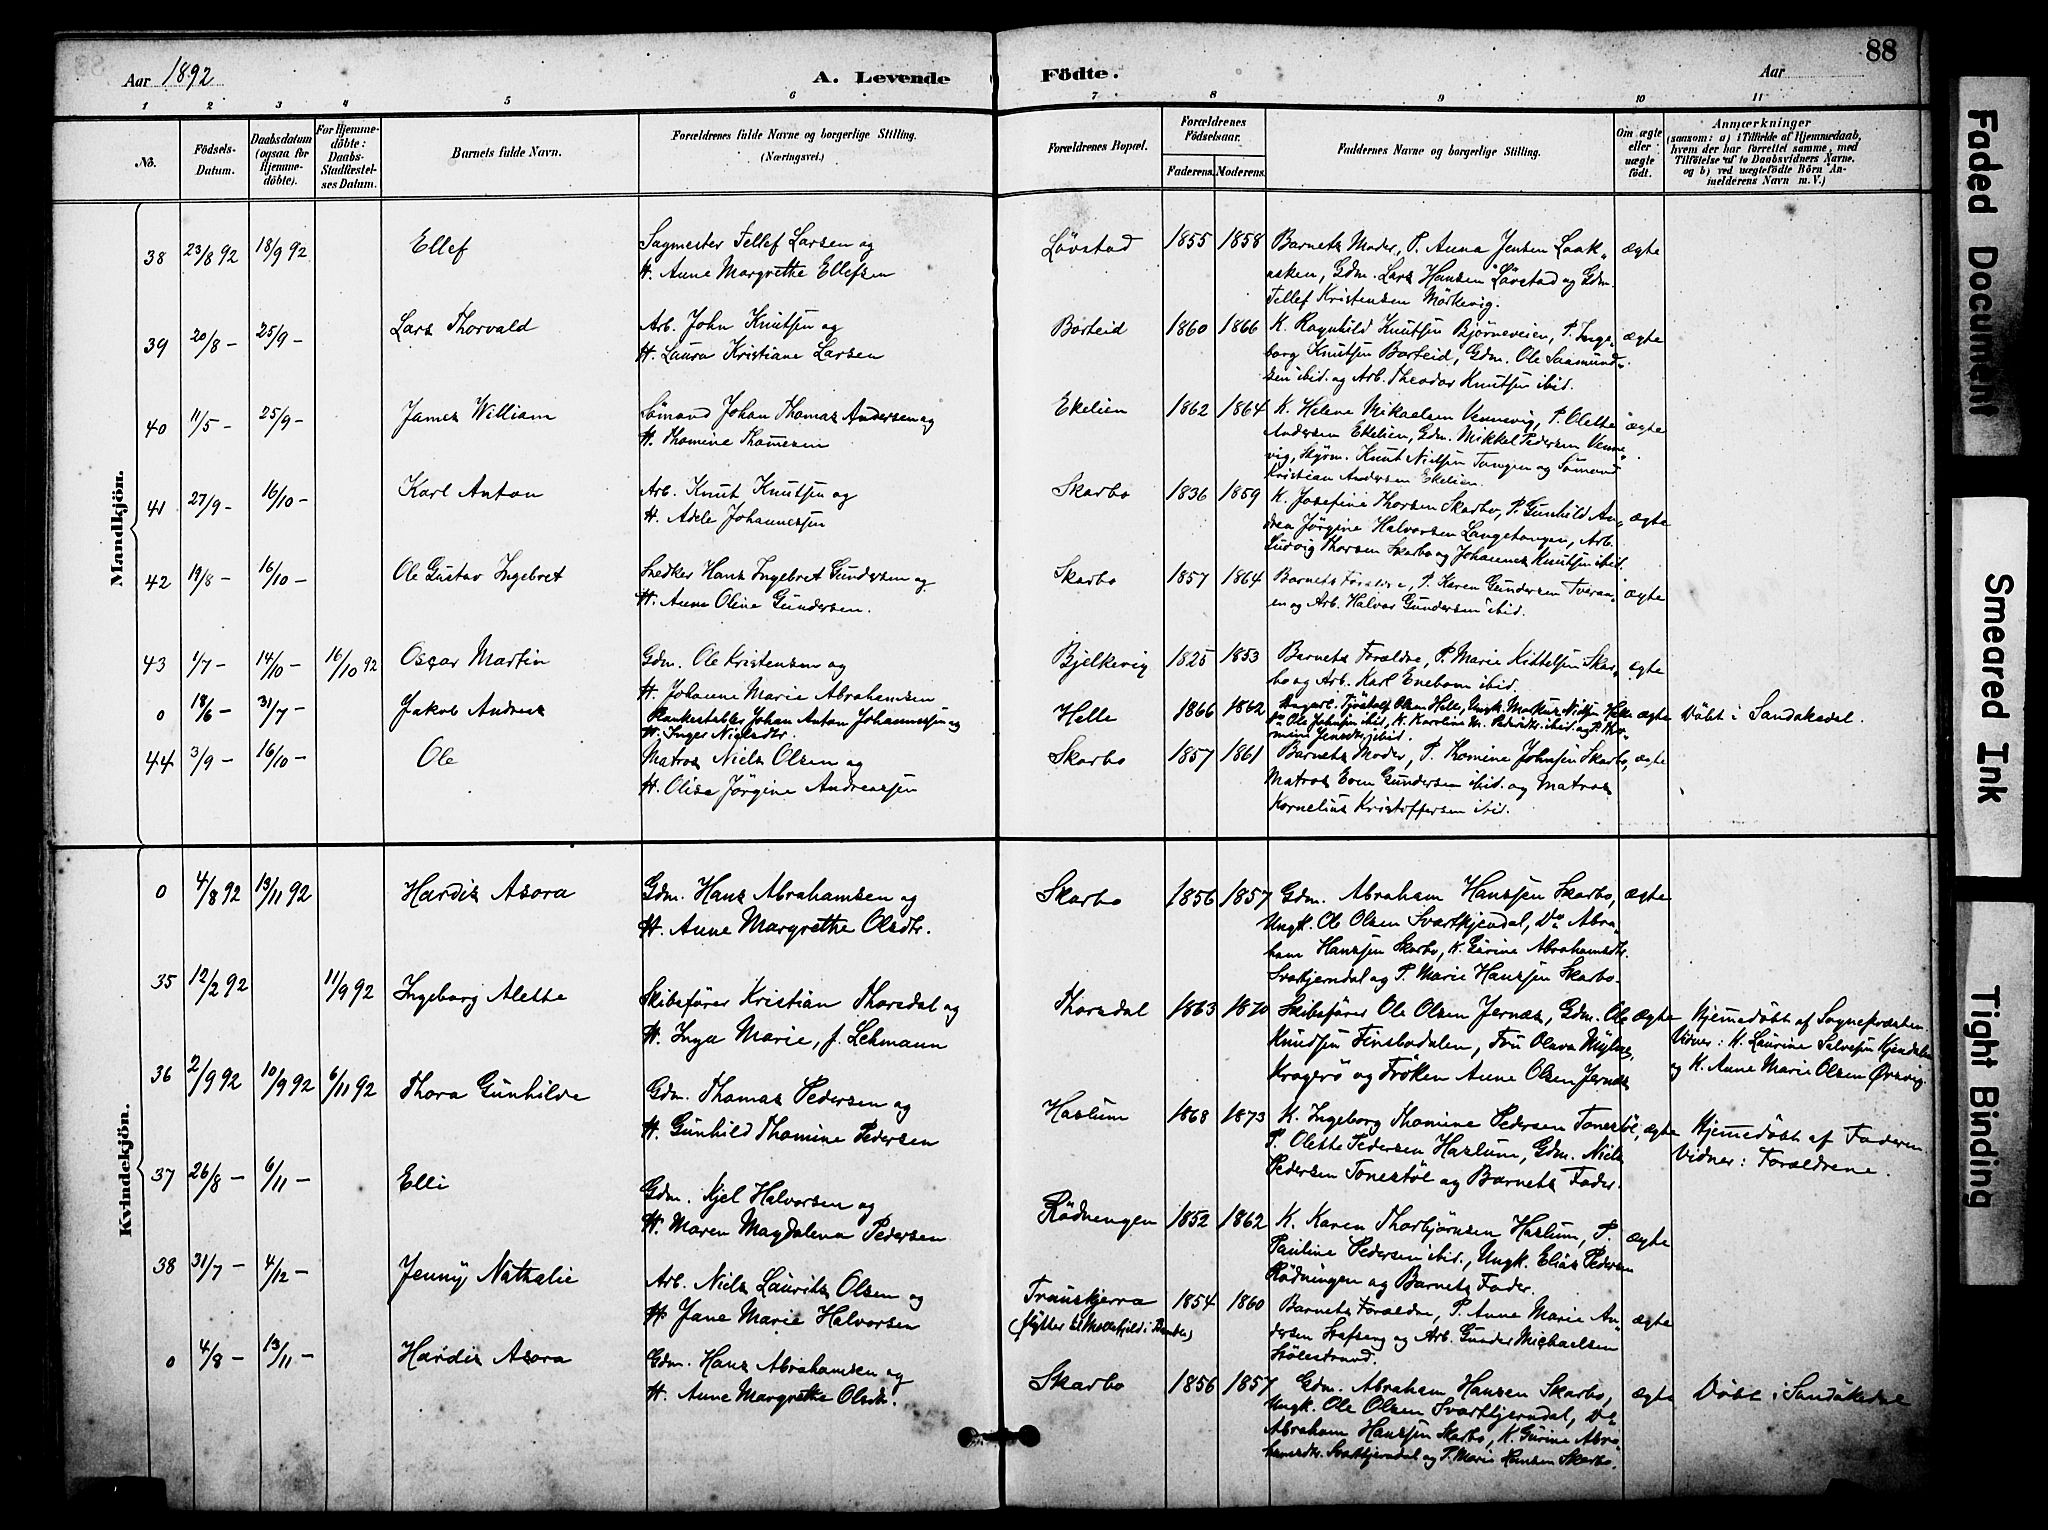 88
Aar 1892
A. Levende
Födte.
Aar
1 2 3 4 5 6 7 8 9 10 11
No.
Födsels-
Datum.
Daabsdatum
(ogsaa for
Hjemme-
döbte).
For Hjemme-
döbte:
Daabs-
Stadfæstel-
ses Datum.
Barnets fulde Navn.
Forældrenes fulde Navne og borgerlige Stilling.
(Næringsvei.)
Forældrenes Bopæl.
Forældrenes
Födselsaar.
Faderens. Moderens.
Faddernes Navne og borgerlige Stilling.
Om ægte
eller
uægte
födt.
Anmærkninger
(saasom: a) i Tilfælde af Hjemmedaab,
hvem der har forrettet samme, med
Tilföielse af to Daabsvidners Navne.
og b) ved uægtefödte Börn An-
melderens Navn m. V.)
Mandkjön.
38 23/8 92 18/9 92 Ellef
Sagmester Tellef Larsen og
H. Anne Margrethe Ellefsen
Løvstad 1855 1858
Barnets Moder, P. Anna Jensen Laak-
asken, Gdm. Lars Hansen Løvstad og Gdm.
Tellef Kristensen Mörkevig.
ægte
39 20/8 - 25/9 - Lars Thorvald
Arb. John Knutsen og
H. Laura Kristiane Larsen
Borteid 1860 1866
K. Ragnhild Knutsen Bjørneveien, P. Inge-
borg Knutsen Borteid, Gdm. Ole Saamund-
sen ibid. og Arb. Theodor Knutsen ibid.
ægte
40 11/5 - 25/9 - James William
Sömand Johan Thomas Andersen og
H. Thomine Thomesen
Ekelien 1862 1864
K. Helene Mikaelsen Vennevig, P. Olette
Andersen Ekelien, Gdm. Mikkel Pedersen Venne-
vig, Styrm. Knut Nielsen Tangen og Sömand
Kristian Andersen Ekelien.
ægte
41 27/9 - 16/10 - Karl Anton
Arb. Knut Knutsen og
H. Adele Johannessen
Skarbo 1836 1859
K. Josefine Thorsen Skarbo, P. Gunhild An-
drea Jörgine Halvorsen Langetangen, Arb.
Ludvig Thorsen Skarbo og Johannes Knutsen ibid.
ægte
42 19/8 - 16/10 - Ole Gustav Ingebret
Snedker Hans Ingebret Gundersen og
H. Anne Oline Gundersen.
Skarbo 1857 1864
Barnets Forældre, P. Karen Gundersen Tveran-
en og Arb. Halvor Gundersen ibid.
ægte
43 1/7 - 14/10 - 16/10 92 Oscar Martin
Gdm. Ole Kristensen og
H. Johanne Marie Abrahamsen
Bjelkevig 1825 1853
Barnets Forældre, P. Marie Kittelsen Skar-
bo og Arb. Karl Enebom ibid.
ægte
0 18/6 - 31/7 - Jakob Andreas
Plankestabler Johan Anton Johannessen og
H. Inger Nielsdtr.
Helle 1866 1862
Ungk. Markus Nielsen Helle
Do Ole Jensen ibid, K. Karoline M. Pedersdtr ibid. og P. Tho-
mine Jensdtr ibid.
ægte Döbt i Sandakedal.
44 3/9 - 16/10 - Ole
Matros Niels Olsen og
H. Olise Jörgine Andreassen
Skarbo 1857 1861
Barnets Moder, P. Thomine Johnsen Skarbo,
Matros Even Gundersen ibid. og Matros
Kornelius Kristoffersen ibid.
ægte
Kvindekjön.
0 4/8 92 13/11 92 Hardis Asora
Gdm. Hans Abrahamsen og
H. Anne Margrethe Olsdtr.
Skarbo 1856 1857
Gdm. Abraham Hanssen Skarbo,
Ungk. Ole Olsen Svartkjendal, Do Abra-
ham Hanssen Skarbo, K. Gurine Abrahamsdtr.
Svartjerndal og P. Marie Hanssen Skarbo.
ægte
35 12/2 92 11/9 92 Ingeborg Alette
Skibsfører Kristian Thorsdal og
H. Inga Marie, f. Lehmann
Thorsdal 1863 1870
Skibsfører Ole Olsen Jernæs, Gdm. Ole
Knudsen Finsbudalen, Fru Olava
Kragerö og Fröken Anne Olsen Jernæs
ægte
Hjemmedöbt af Sognepræsten
Vidner: K. Laurine Salvesen Kjendalen
og K. Anne Marie Olsen Ørsvig.
36 2/9 92 10/9 92 6/11 92 Thora Gunhilde
Gdm. Thomas Pedersen og
H. Gunhild Thomine Pedersen
Haslum 1868 1873
K. Ingeborg Thomine Pedersen Tonestöl,
P. Olette Pedersen Haslum, Gdm. Niels
Pedersen Tonestöl og Barnets Fader.
ægte
Hjemmedöbt af Faderen
Vidner: Forældrene.
37 26/8 - 6/11 - Elli
Gdm. Kjel Halvorsen og
H. Maren Magdalena Pedersen
Rödningen 1852 1862
K. Karen Thorbjörnsen Haslum, P.
Pauline Pedersen ibid., Ungk. Elias Pedersen
Rödningen og Barnets Fader.
ægte
38 31/7 - 4/12 - Jenny Nathalie
Arb. Niels Laurits Olsen og
H. Jane Marie Halvorsen
Tranekjerra 1854 1860
(flytter til i Bamble)
Barnets Forældre, P. Anne Marie An-
dersen Stafseng og Arb. Gunder Michaelsen
Stölestrand.
ægte
0 4/8 - 13/11 - Hardis Asora
Gdm. Hans Abrahamsen og
H. Anne Margrethe Olsdtr.
Skarbo 1856 1857
Gdm. Abraham Hansen Skarbo,
Ungk. Ole Olsen Svartkjerndal, Do
Abraham Hanssen Skarbo, K. Gurine Abra-
hamsdtr. Svartkjerndal og P. Marie Hansen Skarbo.
ægte Döbt i Sandökedal
Faded Document
Smeared Ink
Tight Binding